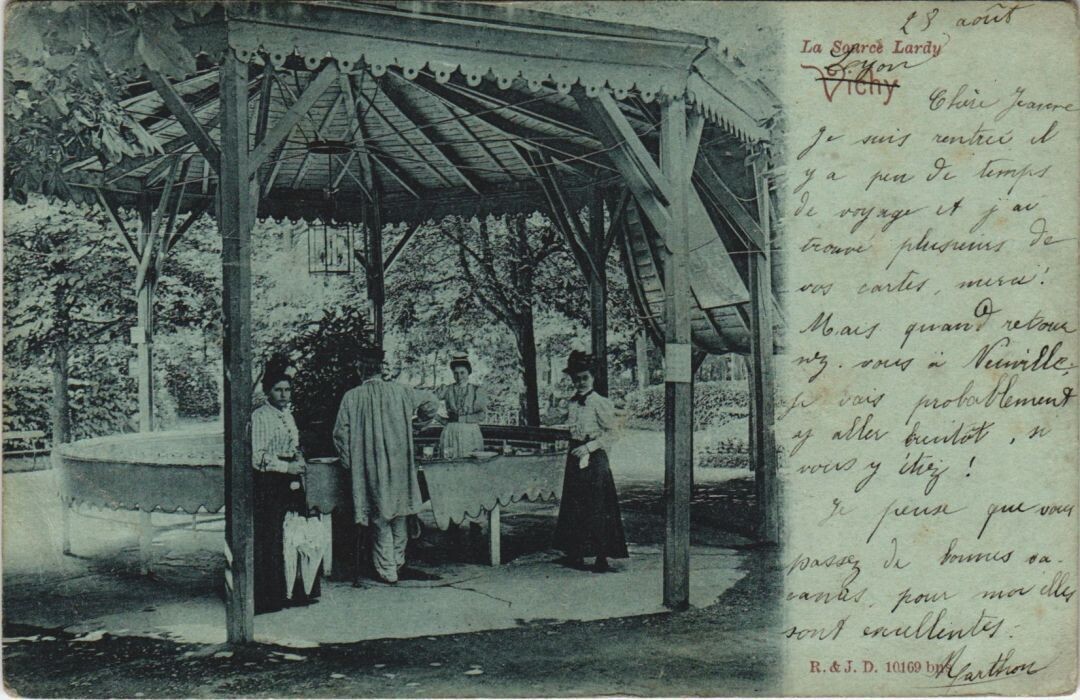 28 août
La Source Lardy
Lyon
Vichy
Chère Jeanne
Je suis rentrée il
y a peu de temps
de voyage et j'ai
trouvé plusieurs de
vos cartes, merci!
Mais quand retour
nez-vous à Neuville-
je vais probablement
y aller bientôt, si
vous y étiez!
Je pense que vous
passez de bonnes va-
cances, pour moi elles
sont excellentes.
R. & J. D. 10169 bns
Marthon